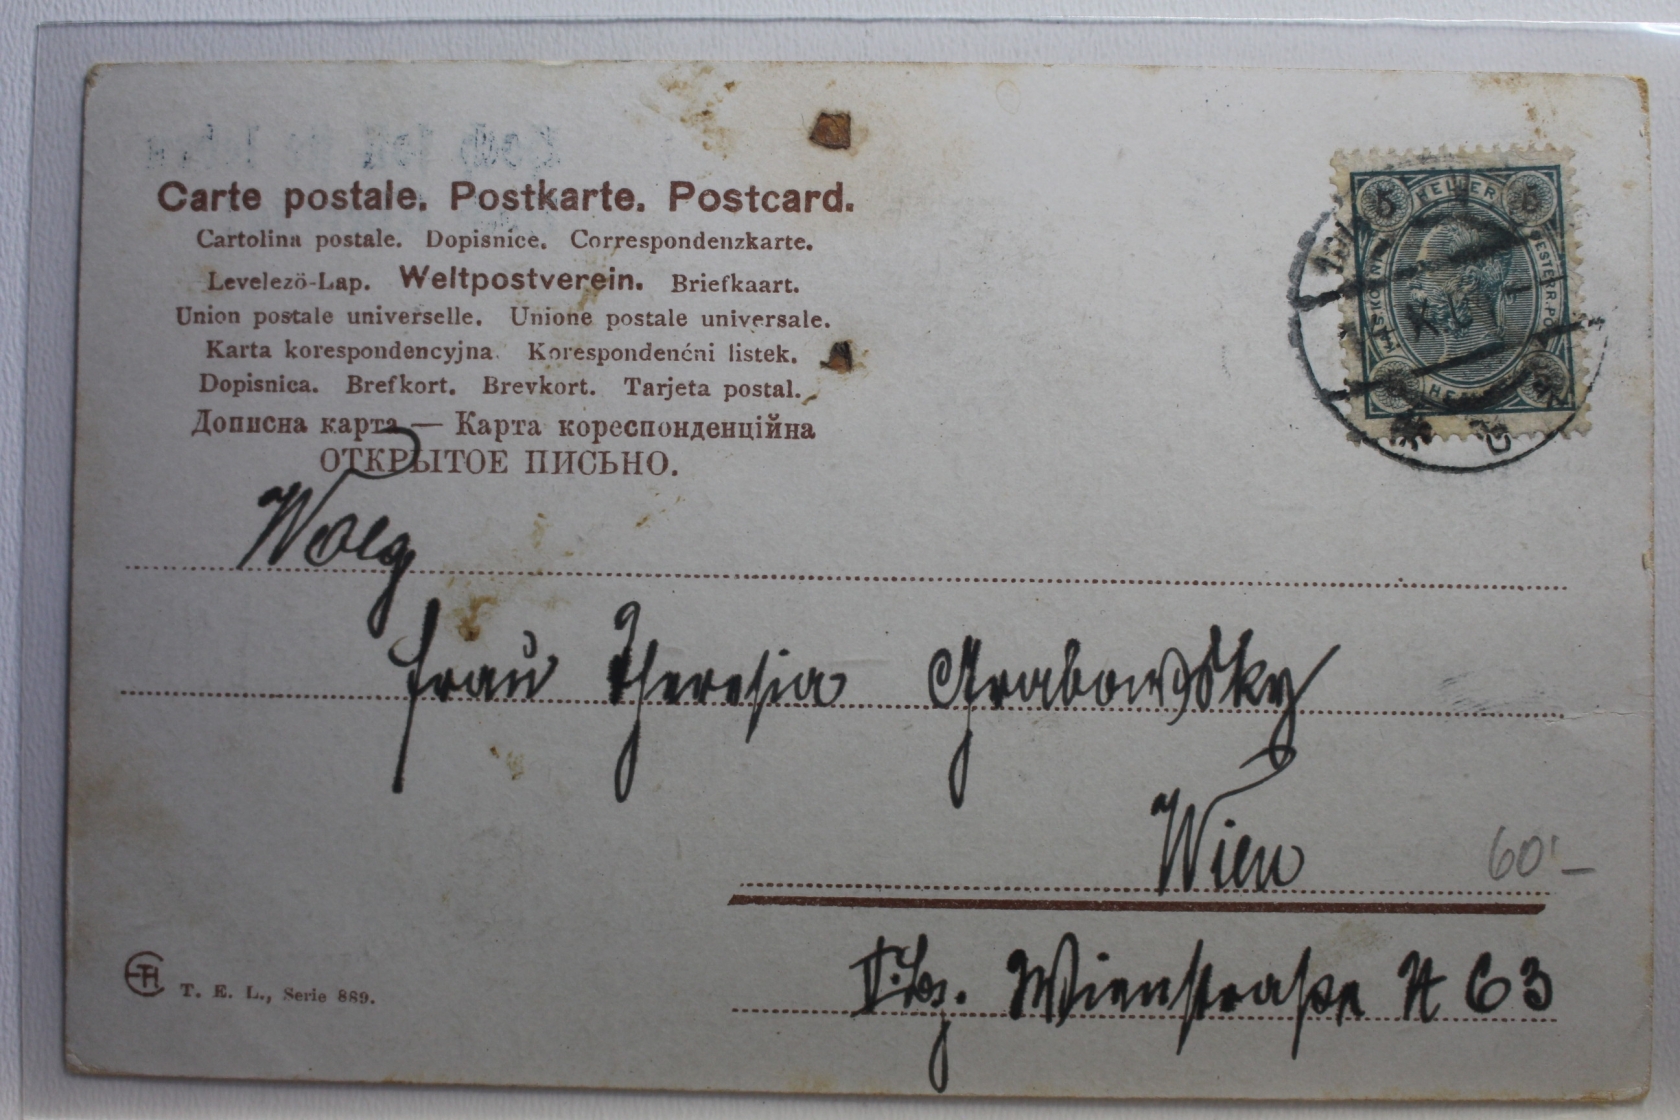 Carte postale. Postkarte. Postcard.
Cartolina postale. Dopisnice. Correspondenzkarte.
Levelező-Lap. Weltpostverein. Briefkaart.
Union postale universelle. Unione postale universale.
Karta korespondencyjna. Korespondenćni listek.
Dopisnica. Brefkort. Brevkort. Tarjeta postal.
Дописна карта — Карта кореспонденційна
ОТКРЫТОЕ ПИСЬНО.
5 HELLER 5
Frau Theresia Grabowsky
Wien
60'-
V. Bz. Wienstraße N 63
T. E. L., Serie 889.